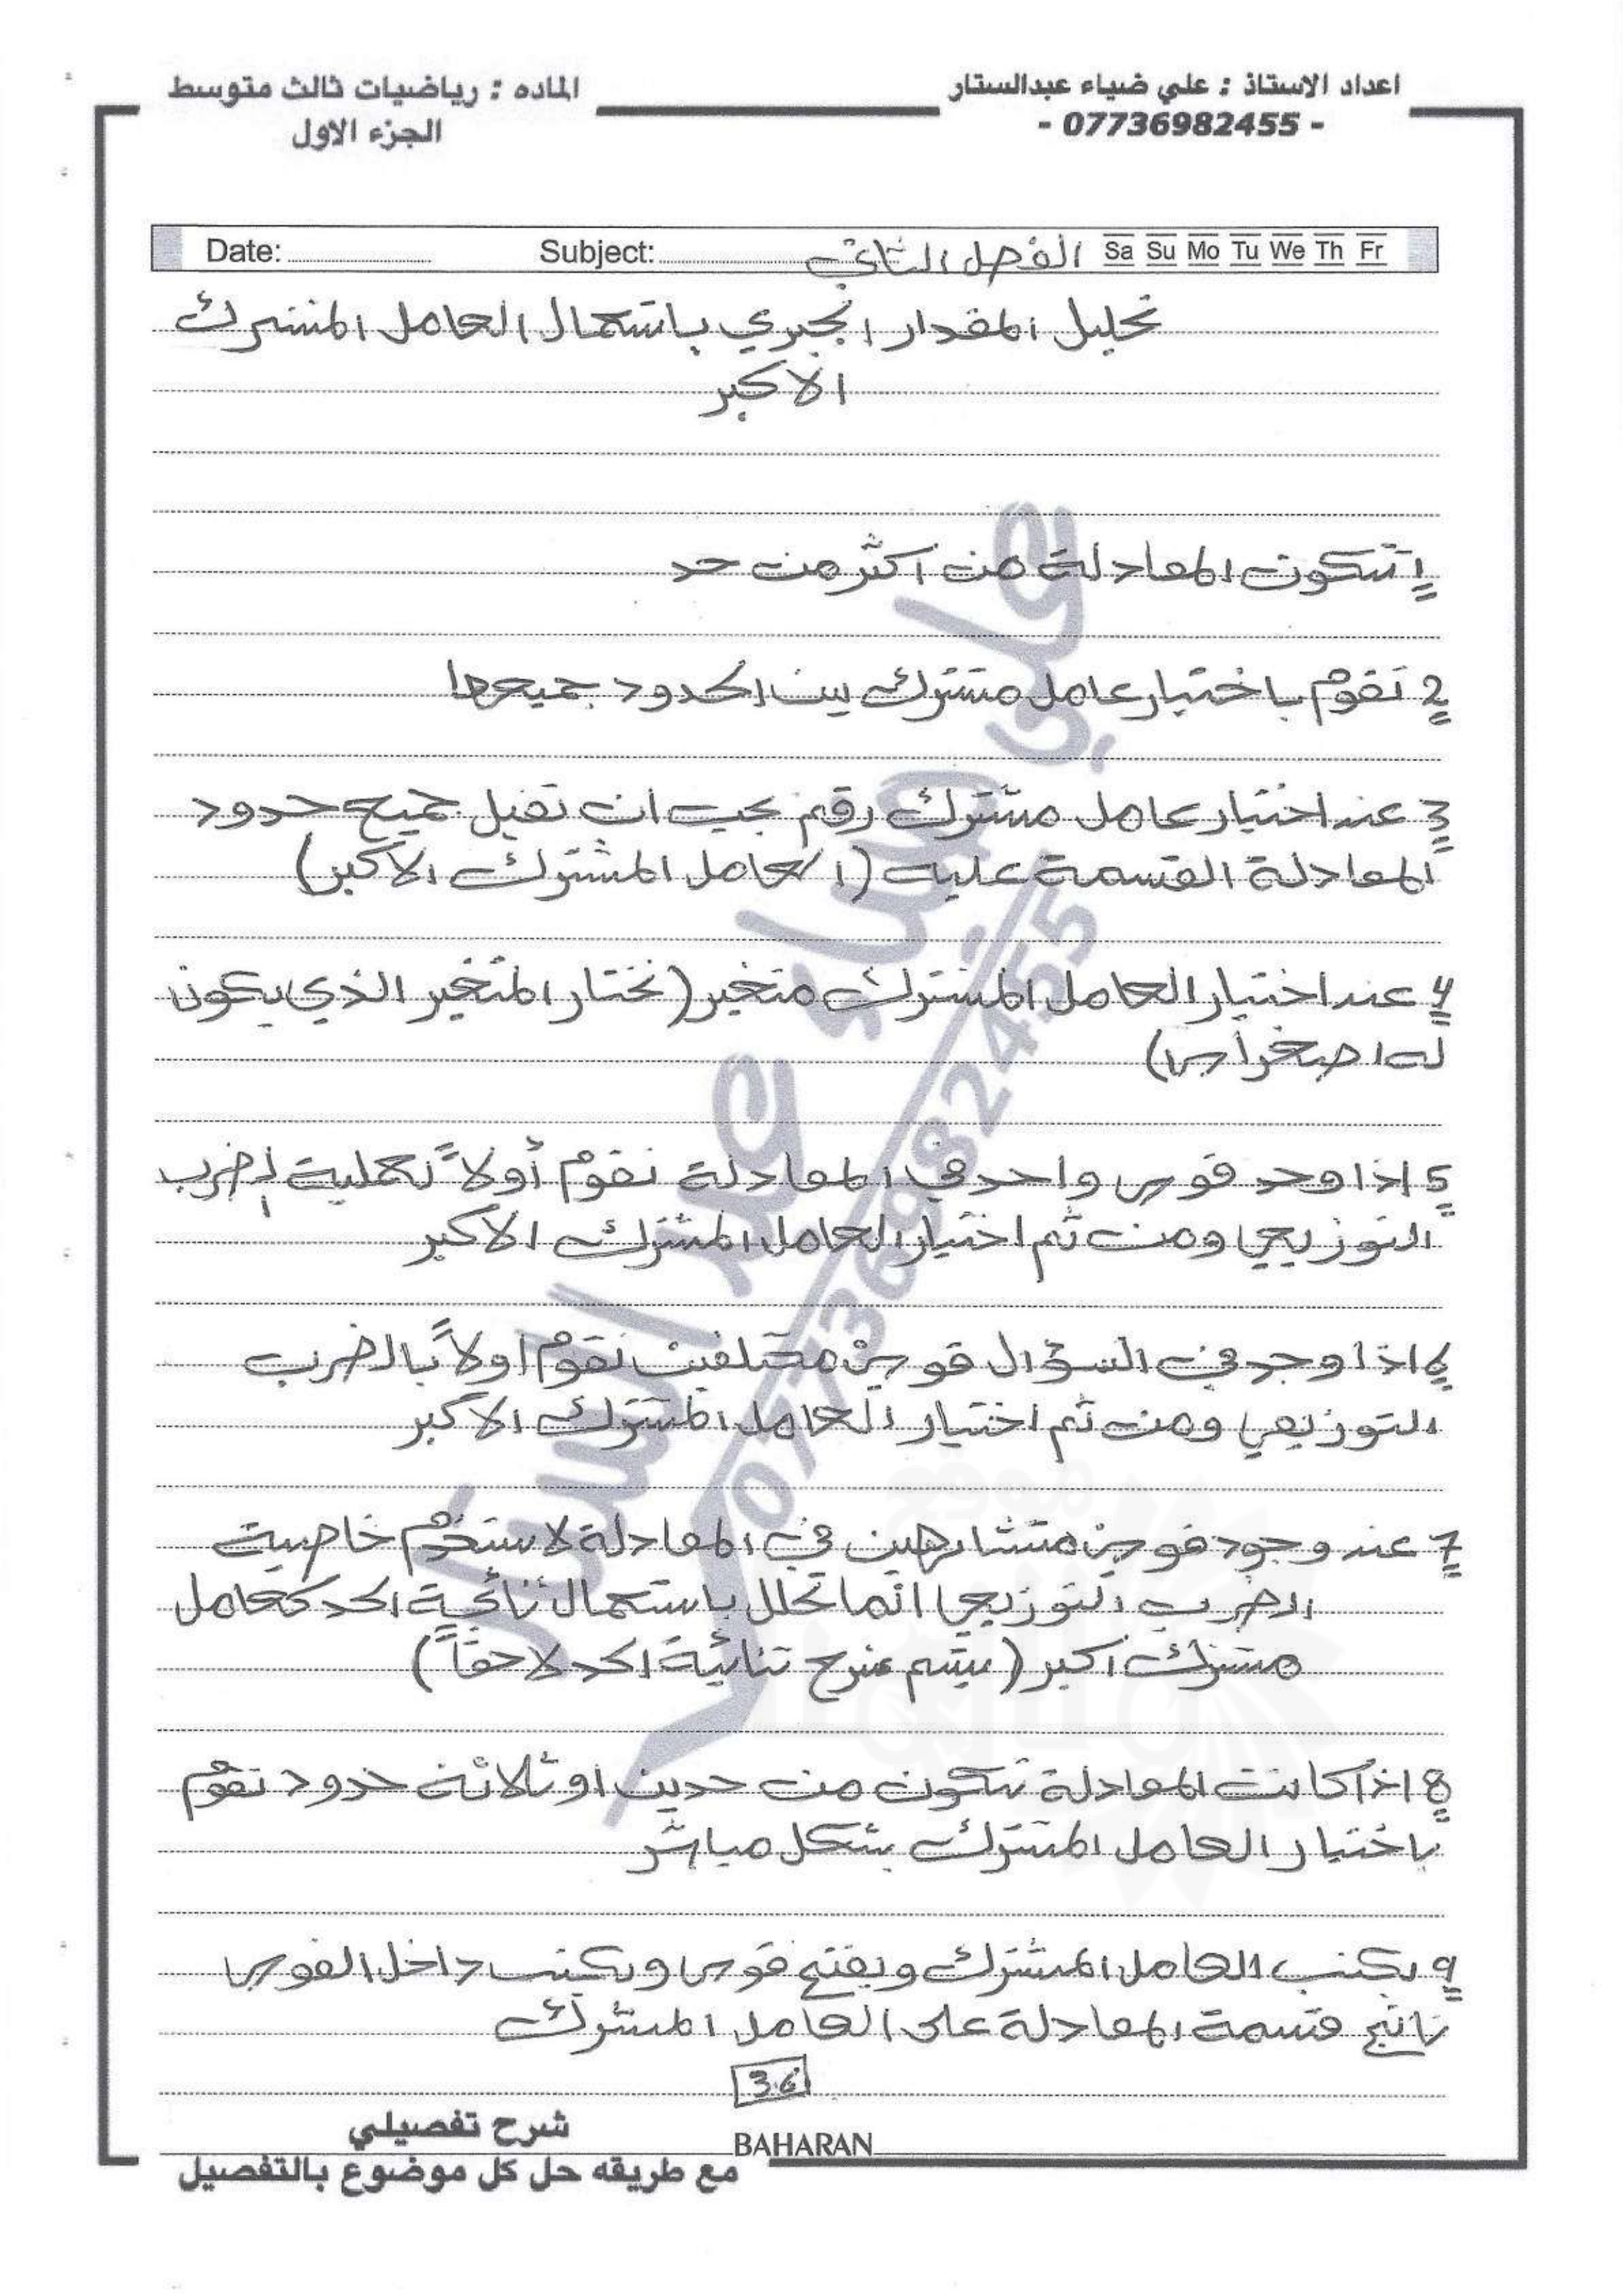 اعداد الاستاذ : علي ضياء عبدالستار
- 07736982455 -
الماده : رياضيات ثالث متوسط
الجزء الاول
Date: Subject: الفصل الثاني Sa Su Mo Tu We Th Fr
تحليل المقدار الجبري باستعمال العامل المشترك
الاكبر
1 تتكون المعادلة من اكثر من حد
2 نقوم باختيار عامل مشترك بين الحدود جميعها
3 عند اختيار عامل مشترك رقم يجب ان تقبل جميع حدود
المعادلة القسمة عليه (العامل المشترك الاكبر)
4 عند اختيار العامل المشترك متغير (نختار المتغير الذي يكون
له اصغر أس)
5 اذا وجد قوس واحد في المعادلة نقوم أولاً بعملية الضرب
التوزيعي ومن ثم اختيار العامل المشترك الاكبر
6 اذا وجد في السؤال قوسين مختلفين نقوم اولاً بالضرب
التوزيعي ومن ثم اختيار العامل المشترك الاكبر
7 عند وجود قوسين متشابهين في المعادلة لا نستخدم خاصية
الضرب التوزيعي انما تحلل باستعمال ثنائية الحد كعامل
مشترك اكبر (سيتم شرح ثنائية الحد لاحقاً)
8 اذا كانت المعادلة تتكون من حدين او ثلاثة حدود نقوم
باختيار العامل المشترك بشكل مباشر
9 يكتب العامل المشترك ويفتح قوس ويكتب داخل القوس
ناتج قسمة المعادلة على العامل المشترك
36
BAHARAN
شرح تفصيلي
مع طريقه حل كل موضوع بالتفصيل
علي ضياء عبد الستار
07736982455